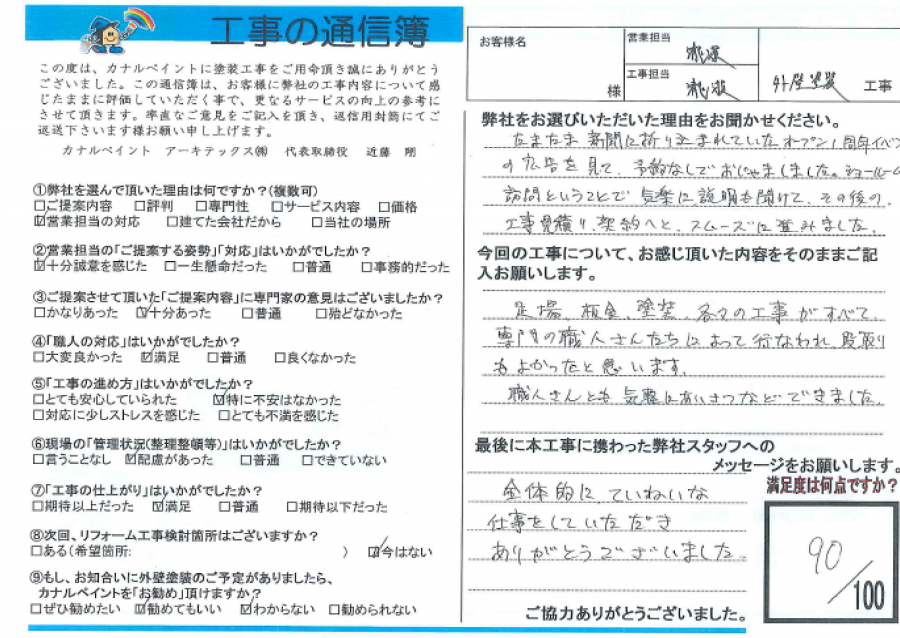 工事の通信簿
この度は、カナルペイントに塗装工事をご用命頂き誠にありがとう
ございました。この通信簿は、お客様に弊社の工事内容について感
じたままに評価していただく事で、更なるサービスの向上の参考に
させて頂きます。率直なご意見をご記入を頂き、返信用封筒にてご
返送下さいます様お願い申し上げます。
カナルペイント アーキテックス㈱ 代表取締役 近藤 剛
①弊社を選んで頂いた理由は何ですか？(複数可)
□ご提案内容 □評判 □専門性 □サービス内容 □価格
☑営業担当の対応 □建てた会社だから □当社の場所
②営業担当の「ご提案する姿勢」「対応」はいかがでしたか？
☑十分誠意を感じた □一生懸命だった □普通 □事務的だった
③ご提案させて頂いた「ご提案内容」に専門家の意見はございましたか？
□かなりあった ☑十分あった □普通 □殆どなかった
④「職人の対応」はいかがでしたか？
□大変良かった ☑満足 □普通 □良くなかった
⑤「工事の進め方」はいかがでしたか？
□とても安心していられた ☑特に不安はなかった
□対応に少しストレスを感じた □とても不満を感じた
⑥現場の「管理状況(整理整頓等)」はいかがでしたか？
□言うことなし ☑配慮があった □普通 □できていない
⑦「工事の仕上がり」はいかがでしたか？
□期待以上だった ☑満足 □普通 □期待以下だった
⑧次回、リフォーム工事検討箇所はございますか？
□ある(希望箇所: ) ☑今はない
⑨もし、お知合いに外壁塗装のご予定がありましたら、
カナルペイントを「お勧め」頂けますか？
□ぜひ勧めたい ☑勧めてもいい ☑わからない □勧められない
お客様名 様
営業担当
工事担当
外壁塗装 工事
弊社をお選びいただいた理由をお聞かせください。
たまたま新聞に折り込まれていたオープン1周年イベン
の広告を見て、予約なしでおじゃましました。ショールーム
訪問ということで気楽に説明も聞けて、その後の、
工事見積り、契約へと、スムーズに進みました。
今回の工事について、お感じ頂いた内容をそのままご記
入お願いします。
足場、板金、塗装、各々の工事がすべて、
専門の職人さんたちによって行なわれ、段取り
もよかったと思います。
職人さんとも気軽にあいさつなどできました。
最後に本工事に携わった弊社スタッフへの
メッセージをお願いします。
全体的にていねいな
仕事をしていただき
ありがとうございました。
満足度は何点ですか？
90/100
ご協力ありがとうございました。